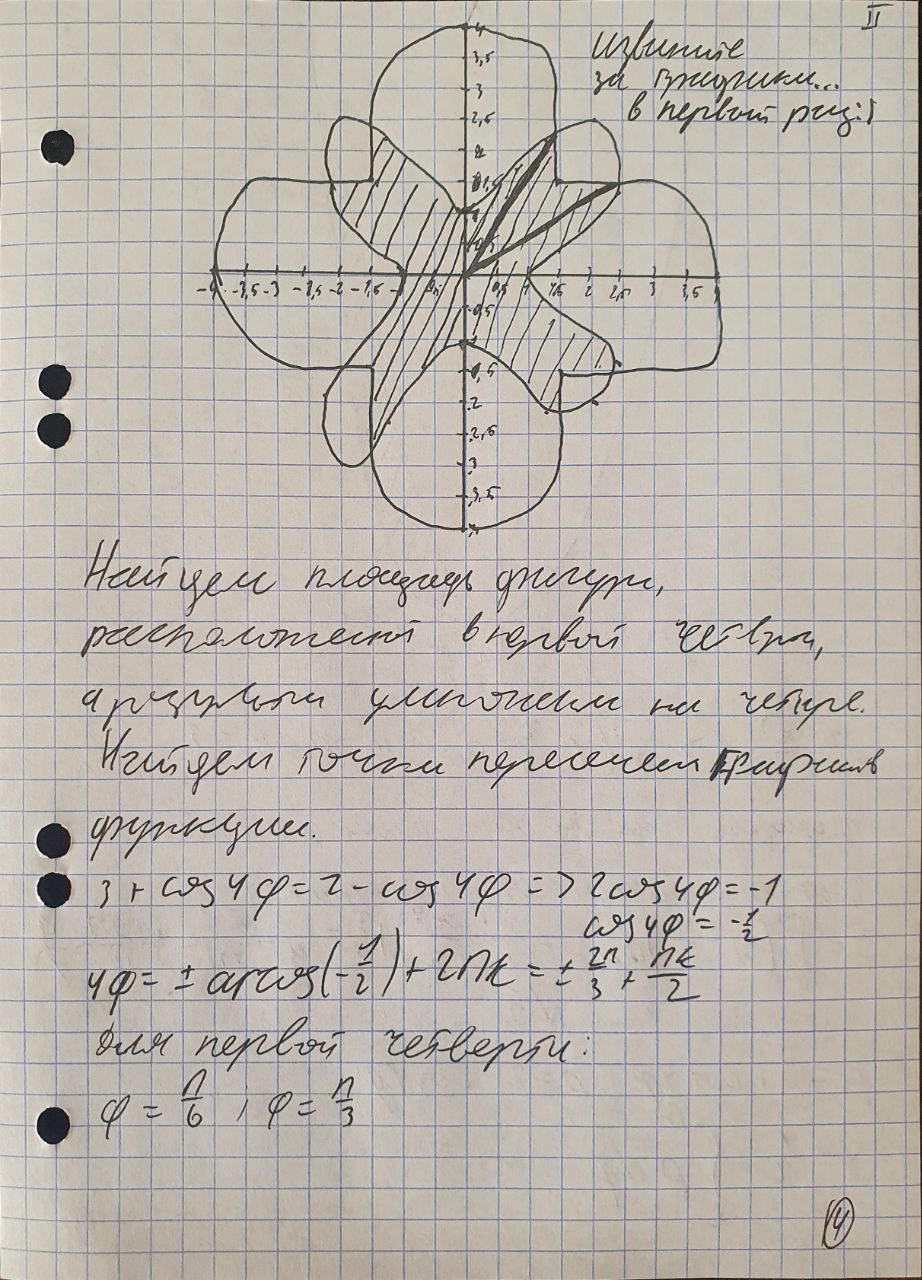 II
извините
за графики...
в первой раз:)
4
3,5
3
2,5
2
1,5
1
0,5
-4 -3,5 -3 -2,5 -2 -1,5 0,5 1 1,5 2 2,5 3 3,5 4
0,5
1
1,5
2
2,5
3
3,5
Найдем площадь фигуры,
расположенной в первой четверти,
а результат умножим на четыре.
Найдем точки пересечения графиков
функции.
3 + cos4φ = 2 - cos4φ => 2cos4φ = -1
cos4φ = -1/2
4φ = ± arccos(-1/2) + 2πk = ± 2π/3 + πk/2
Для первой четверти:
φ = π/6 ; φ = π/3
4